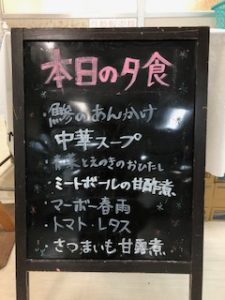 本日の夕食
鯵のあんかけ
・中華スープ
菜とえのきのおひたし
・ミートボールの甘酢煮
・マーボー春雨
・トマト・レタス
・さつまいも甘露煮